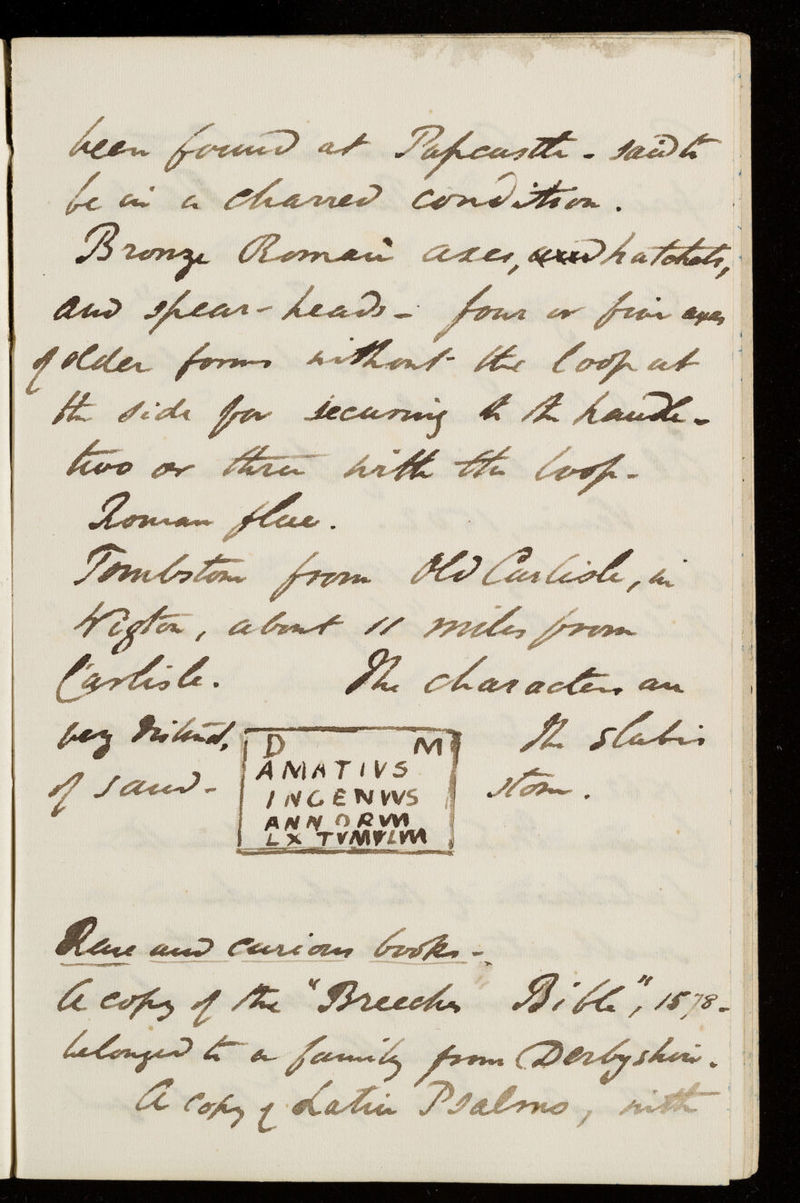 been found at Papcastle - said to
be in a charred condition.
Bronze Roman axes, and hatchets,
and spear-heads - four or five axes
of older forms without the loop at
the side for securing to the handle -
two or three with the loop -
Roman flue.
Tombstone from Old Carlisle, in
Wigton, about 11 miles from
Carlisle. The characters are
very distinct, The slab is
of sand- stone.
D M
AMATIVS
INGENVVS
ANNORVM
LX TVMVLVM
Rare and curious books -
A copy of the "Breeches Bible", 1578 -
belonged to a family from Derbyshire.
A copy of Latin Psalms, with